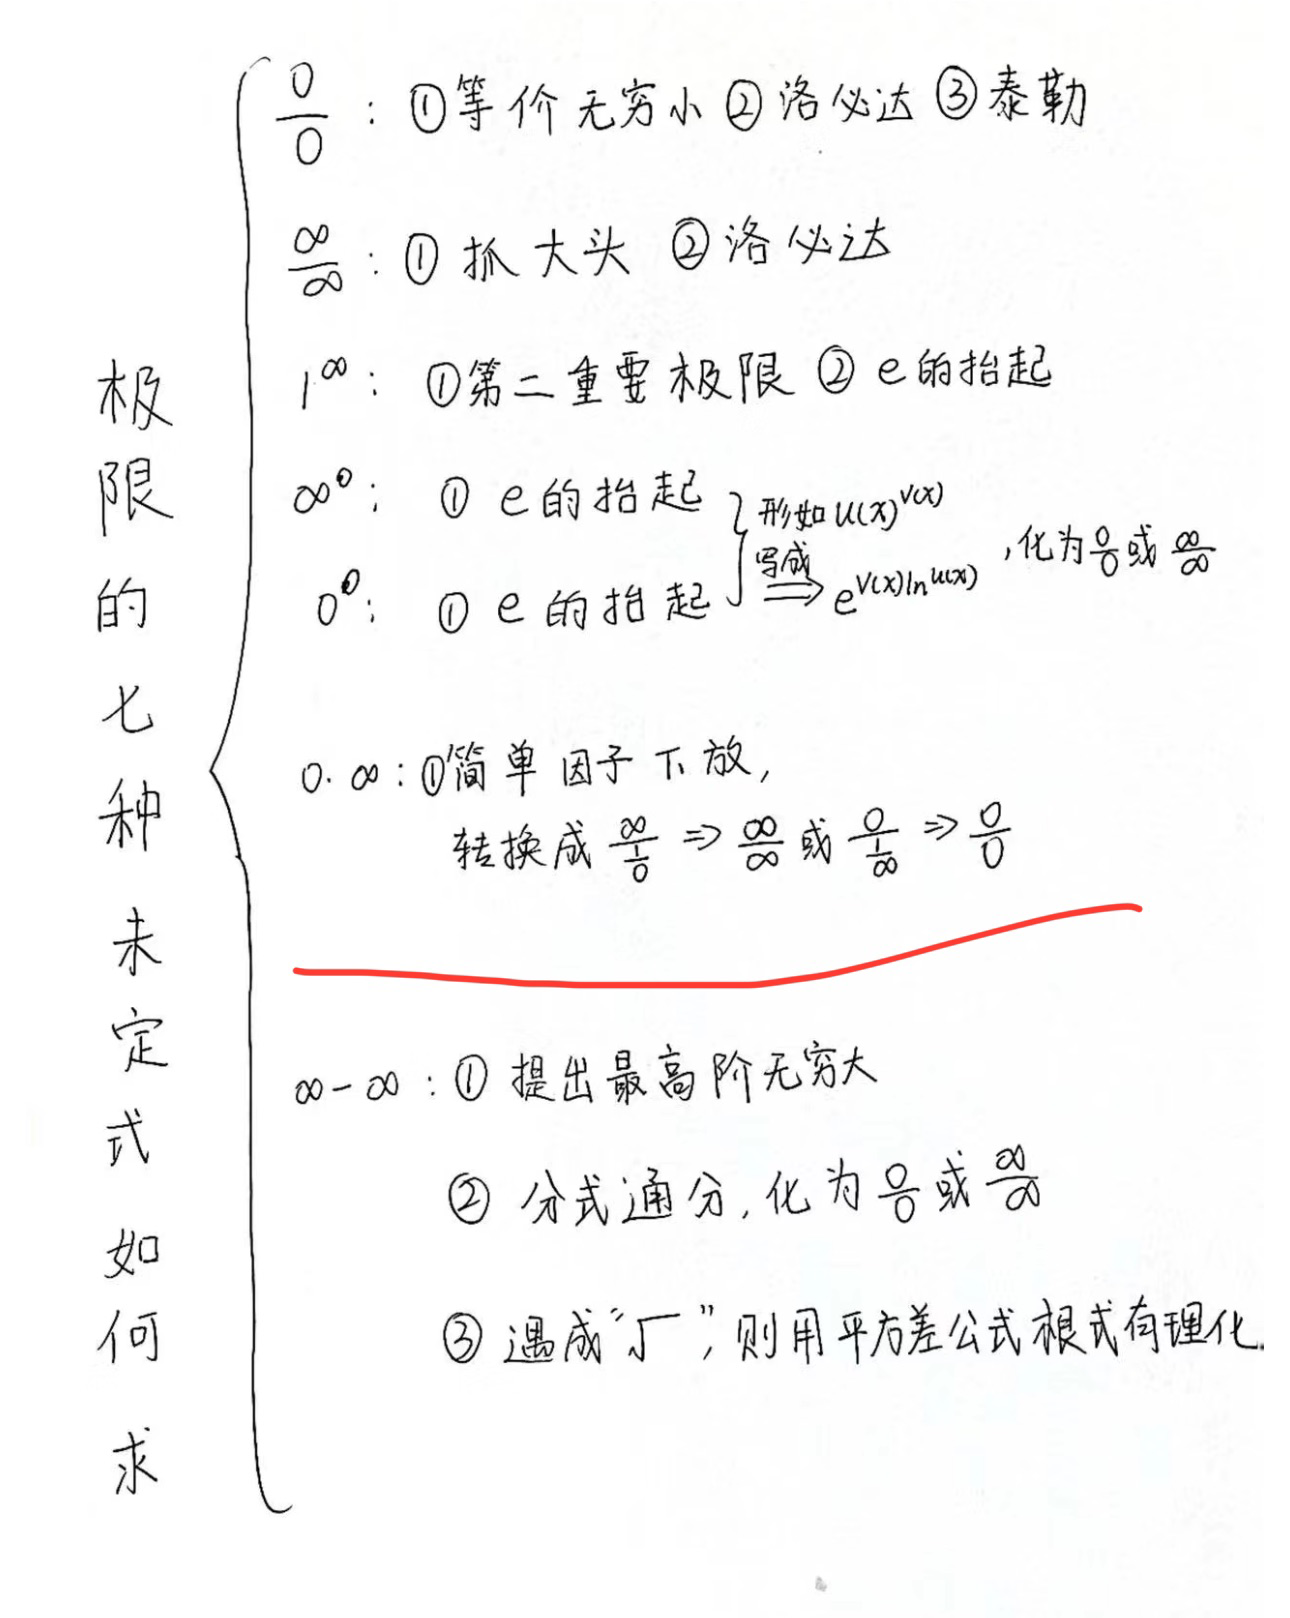 极限的七种未定式如何求
0/0：①等价无穷小 ②洛必达 ③泰勒
∞/∞：①抓大头 ②洛必达
1^∞：①第二重要极限 ②e的抬起
∞^0：①e的抬起
0^0：①e的抬起
形如u(x)^v(x)
写成⇒e^v(x)ln u(x)，化为0/0或∞/∞
0·∞：①简单因子下放，
转换成∞/(1/0)⇒∞/∞或0/(1/∞)⇒0/0
∞-∞：①提出最高阶无穷大
②分式通分，化为0/0或∞/∞
③遇成“√”，则用平方差公式根式有理化.